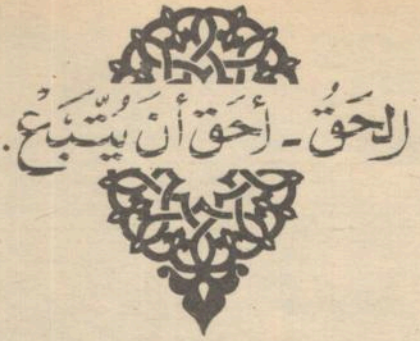 الحَقُ - أحَق أنَ يُتَّبَعْ.